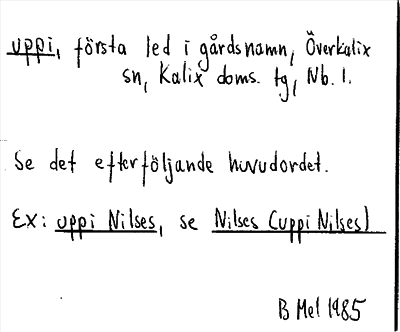 uppi, första led i gårdsnamn, Överkalix
sn, Kalix doms. tg, Nb. l.
Se det efterföljande huvudordet.
Ex: uppi Nilses, se Nilses (uppi Nilses)
B Mel 1985